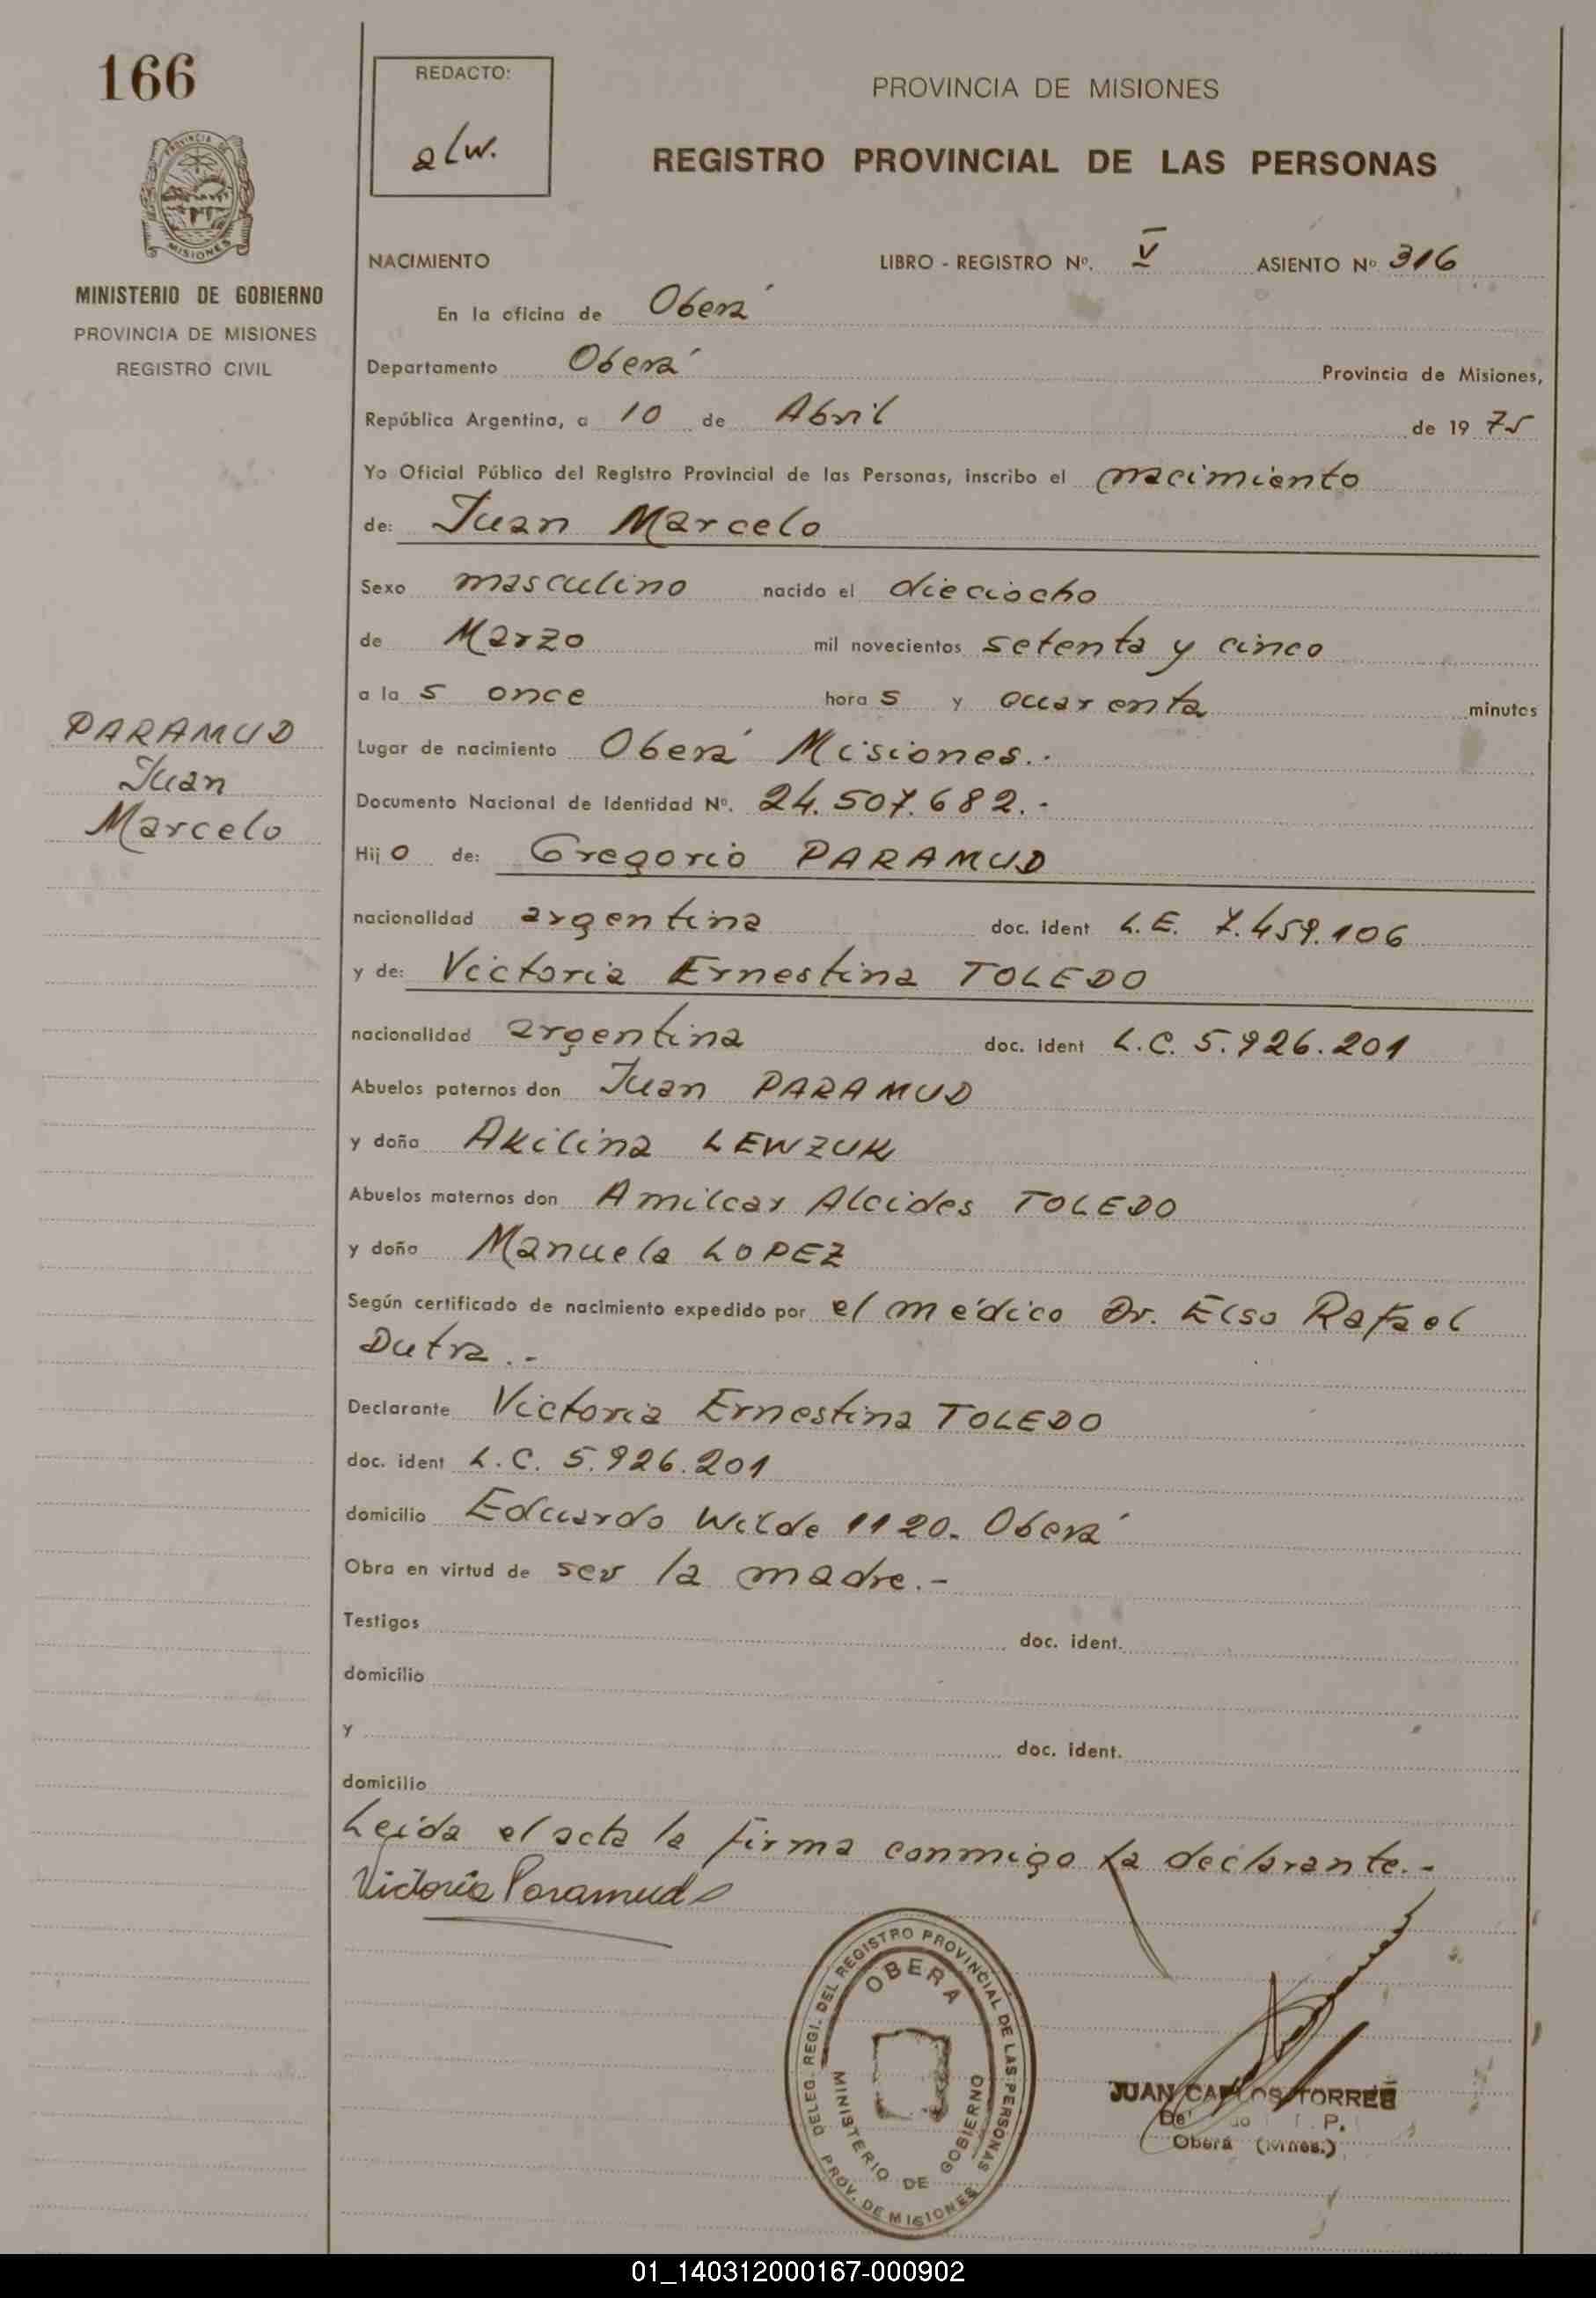 166
REDACTO:
alw.
PROVINCIA DE MISIONES
REGISTRO PROVINCIAL DE LAS PERSONAS
PROVINCIA DE
MISIONES
MINISTERIO DE GOBIERNO
PROVINCIA DE MISIONES
REGISTRO CIVIL
NACIMIENTO LIBRO - REGISTRO Nº. V ASIENTO Nº 316
En la oficina de Oberá
Departamento Oberá Provincia de Misiones,
República Argentina, a 10 de Abril de 19 75
Yo Oficial Público del Registro Provincial de las Personas, inscribo el nacimiento
de: Juan Marcelo
Sexo masculino nacido el dieciocho
de Marzo mil novecientos setenta y cinco
a la s once hora s y cuarenta minutos
PARAMUD
Juan
Marcelo
Lugar de nacimiento Oberá Misiones.-
Documento Nacional de Identidad Nº. 24.507.682.-
Hij o de: Gregorio PARAMUD
nacionalidad argentina doc. ident L.E. 7.459.106
y de: Victoria Ernestina TOLEDO
nacionalidad argentina doc. ident L.C. 5.926.201
Abuelos paternos don Juan PARAMUD
y doña Akilina LEWZUK
Abuelos maternos don Amilcar Alcides TOLEDO
y doña Manuela LOPEZ
Según certificado de nacimiento expedido por el médico Dr. Elso Rafael
Dutra.-
Declarante Victoria Ernestina TOLEDO
doc. ident L.C. 5.926.201
domicilio Eduardo Wilde 1120. Oberá
Obra en virtud de ser la madre.-
Testigos doc. ident.
domicilio
y doc. ident.
domicilio
Leida el acta la firma conmigo la declarante.-
Victoria Paramud
DELEG. REGI. DEL REGISTRO PROVINCIAL DE LAS PERSONAS
OBERA
MINISTERIO DE GOBIERNO
PROV. DE MISIONES
JUAN CARLOS TORRES
Oberá (Mnes.)
01_140312000167-000902